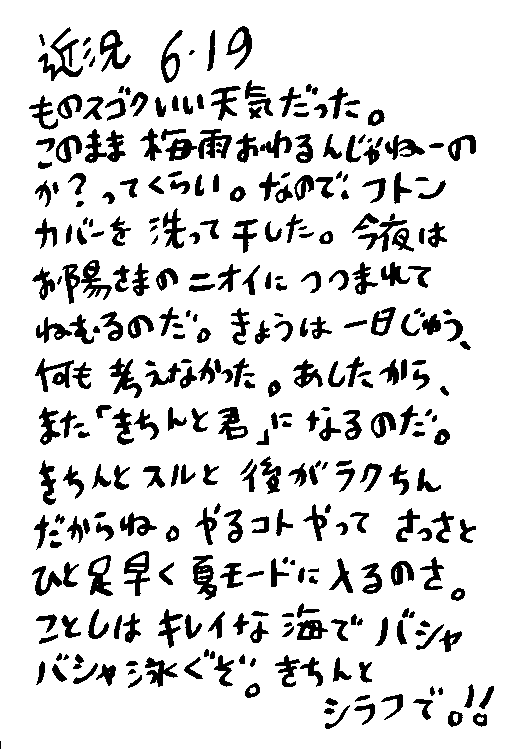 近況 6・19
ものスゴクいい天気だった。
このまま 梅雨おわるんじゃねーの
か?ってくらい。なので、フトン
カバーを 洗って干した。今夜は
お陽さまのニオイに つつまれて
ねむるのだ。きょうは 一日じゅう、
何も 考えなかった。あしたから、
また「きちんと君」になるのだ。
きちんとスルと 後がラクちん
だからね。やるコトやって さっさと
ひと足早く夏モードに入るのさ。
ことしは キレイな 海で バシャ
バシャ泳ぐぞ。きちんと
シラフで。!!